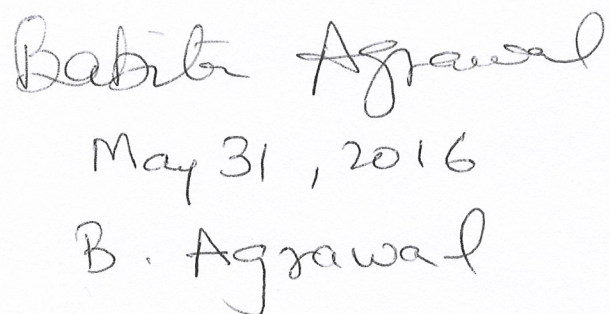 Babita Agrawal
May 31, 2016
B. Agrawal